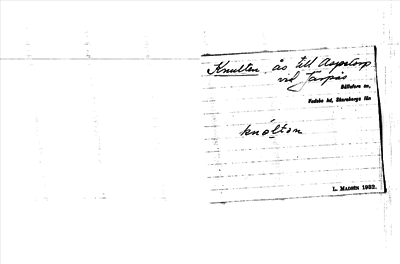 Knulten ås till Aspetorp
vid Torpås
Bällefors sn,
Vadsbo hd, Skaraborgs län
knólton
L. MADSÉN 1932.